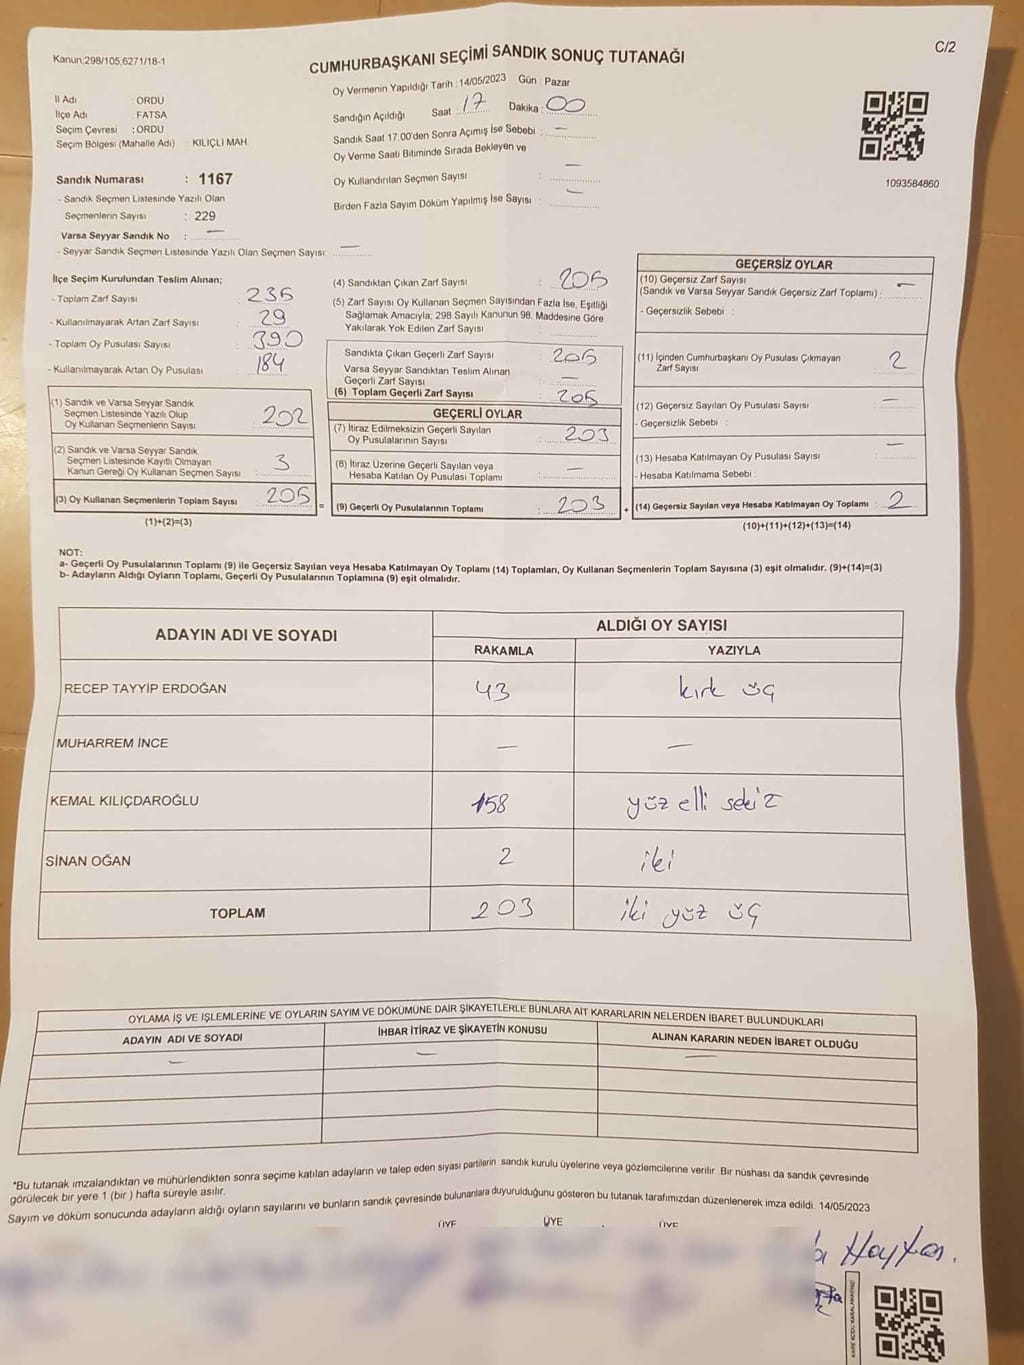 Kanun,298/105,6271/18-1
C/2
CUMHURBAŞKANI SEÇİMİ SANDIK SONUÇ TUTANAĞI
İl Adı : ORDU
İlçe Adı : FATSA
Seçim Çevresi : ORDU
Seçim Bölgesi (Mahalle Adı) : KILIÇLI MAH.
Sandık Numarası : 1167
- Sandık Seçmen Listesinde Yazılı Olan
Seçmenlerin Sayısı : 229
Varsa Seyyar Sandık No : —
- Seyyar Sandık Seçmen Listesinde Yazılı Olan Seçmen Sayısı: —
Oy Vermenin Yapıldığı Tarih : 14/05/2023 Gün : Pazar
Sandığın Açıldığı Saat : 17 Dakika : 00
Sandık Saat 17.00'den Sonra Açımış İse Sebebi : —
Oy Verme Saati Bitiminde Sırada Bekleyen ve
Oy Kullandırılan Seçmen Sayısı : —
Birden Fazla Sayım Döküm Yapılmış İse Sayısı : —
1093584860
İlçe Seçim Kurulundan Teslim Alınan;
- Toplam Zarf Sayısı : 235
- Kullanılmayarak Artan Zarf Sayısı : 29
- Toplam Oy Pusulası Sayısı : 390
- Kullanılmayarak Artan Oy Pusulası : 184
(1) Sandık ve Varsa Seyyar Sandık
Seçmen Listesinde Yazılı Olup
Oy Kullanan Seçmenlerin Sayısı : 202
(2) Sandık ve Varsa Seyyar Sandık
Seçmen Listesinde Kayıtlı Olmayan
Kanun Gereği Oy Kullanan Seçmen Sayısı : 3
(3) Oy Kullanan Seçmenlerin Toplam Sayısı : 205
(1)+(2)=(3)
(4) Sandıktan Çıkan Zarf Sayısı : 205
(5) Zarf Sayısı Oy Kullanan Seçmen Sayısından Fazla İse, Eşitliği
Sağlamak Amacıyla; 298 Sayılı Kanunun 98. Maddesine Göre
Yakılarak Yok Edilen Zarf Sayısı :
Sandıkta Çıkan Geçerli Zarf Sayısı : 205
Varsa Seyyar Sandıktan Teslim Alınan
Geçerli Zarf Sayısı : —
(6) Toplam Geçerli Zarf Sayısı : 205
GEÇERLİ OYLAR
(7) İtiraz Edilmeksizin Geçerli Sayılan
Oy Pusulalarının Sayısı : 203
(8) İtiraz Üzerine Geçerli Sayılan veya
Hesaba Katılan Oy Pusulası Toplamı : —
= (9) Geçerli Oy Pusulalarının Toplamı : 203
GEÇERSİZ OYLAR
(10) Geçersiz Zarf Sayısı
(Sandık ve Varsa Seyyar Sandık Geçersiz Zarf Toplamı) : —
- Geçersizlik Sebebi :
(11) İçinden Cumhurbaşkanı Oy Pusulası Çıkmayan
Zarf Sayısı : 2
(12) Geçersiz Sayılan Oy Pusulası Sayısı : —
- Geçersizlik Sebebi :
(13) Hesaba Katılmayan Oy Pusulası Sayısı : —
- Hesaba Katılmama Sebebi :
+ (14) Geçersiz Sayılan veya Hesaba Katılmayan Oy Toplamı : 2
(10)+(11)+(12)+(13)=(14)
NOT:
a- Geçerli Oy Pusulalarının Toplamı (9) ile Geçersiz Sayılan veya Hesaba Katılmayan Oy Toplamı (14) Toplamları, Oy Kullanan Seçmenlerin Toplam Sayısına (3) eşit olmalıdır. (9)+(14)=(3)
b- Adayların Aldığı Oyların Toplamı, Geçerli Oy Pusulalarının Toplamına (9) eşit olmalıdır.
ADAYIN ADI VE SOYADI ALDIĞI OY SAYISI
RAKAMLA YAZIYLA
RECEP TAYYİP ERDOĞAN 43 kırk üç
MUHARREM İNCE — —
KEMAL KILIÇDAROĞLU 158 yüz elli sekiz
SİNAN OĞAN 2 iki
TOPLAM 203 iki yüz üç
OYLAMA İŞ VE İŞLEMLERİNE VE OYLARIN SAYIM VE DÖKÜMÜNE DAİR ŞİKAYETLERLE BUNLARA AİT KARARLARIN NELERDEN İBARET BULUNDUKLARI
ADAYIN ADI VE SOYADI İHBAR İTİRAZ VE ŞİKAYETİN KONUSU ALINAN KARARIN NEDEN İBARET OLDUĞU
— — —
*Bu tutanak imzalandıktan ve mühürlendikten sonra seçime katılan adayların ve talep eden siyasi partilerin sandık kurulu üyelerine veya gözlemcilerine verilir. Bir nüshası da sandık çevresinde
görülecek bir yere 1 (bir ) hafta süreyle asılır.
Sayım ve döküm sonucunda adayların aldığı oyların sayılarını ve bunların sandık çevresinde bulunanlara duyurulduğunu gösteren bu tutanak tarafımızdan düzenlenerek imza edildi. 14/05/2023
ÜYE ÜYE ÜYE